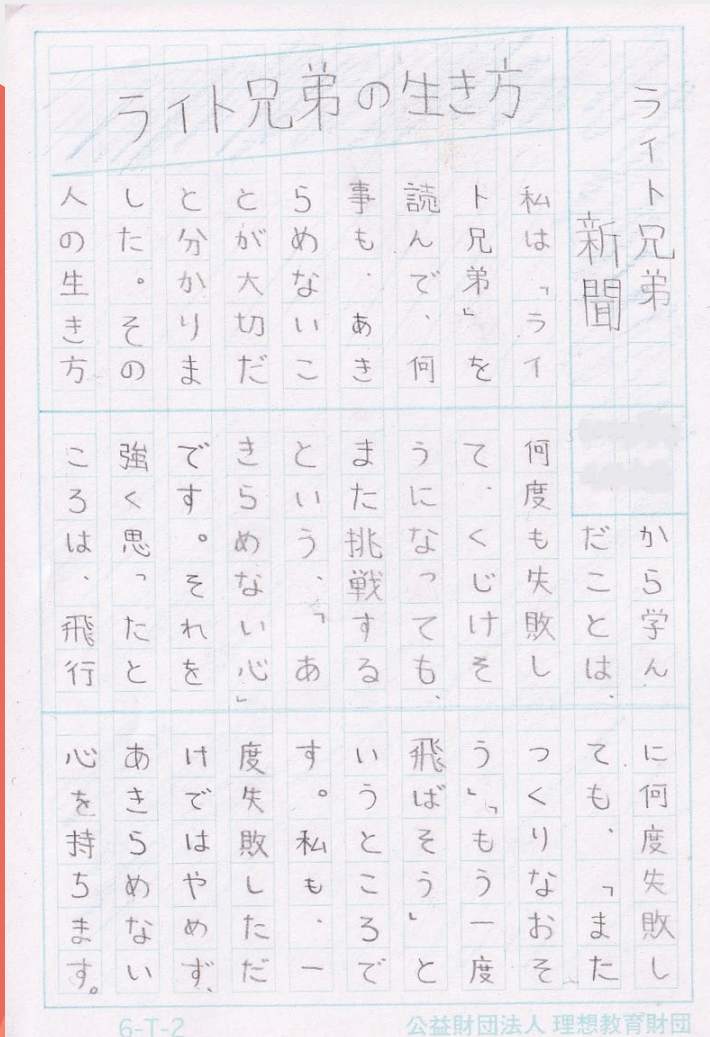 ライト兄弟
新聞
ライト兄弟の生き方
私は「ライ
ト兄弟」を
読んで、何
事も、あき
らめないこ
とが大切だ
と分かりま
した。その
人の生き方
から学ん
だことは、
何度も失敗し
て、くじけそ
うになっても、
また挑戦する
という、「あ
きらめない心」
です。それを
強く思ったと
ころは、飛行
に何度失敗し
ても、「また
つくりなおそ
う」、「もう一度
飛ばそう」と
いうところで
す。私も、一
度失敗しただ
けではやめず、
あきらめない
心を持ちます。
6-T-2
公益財団法人 理想教育財団